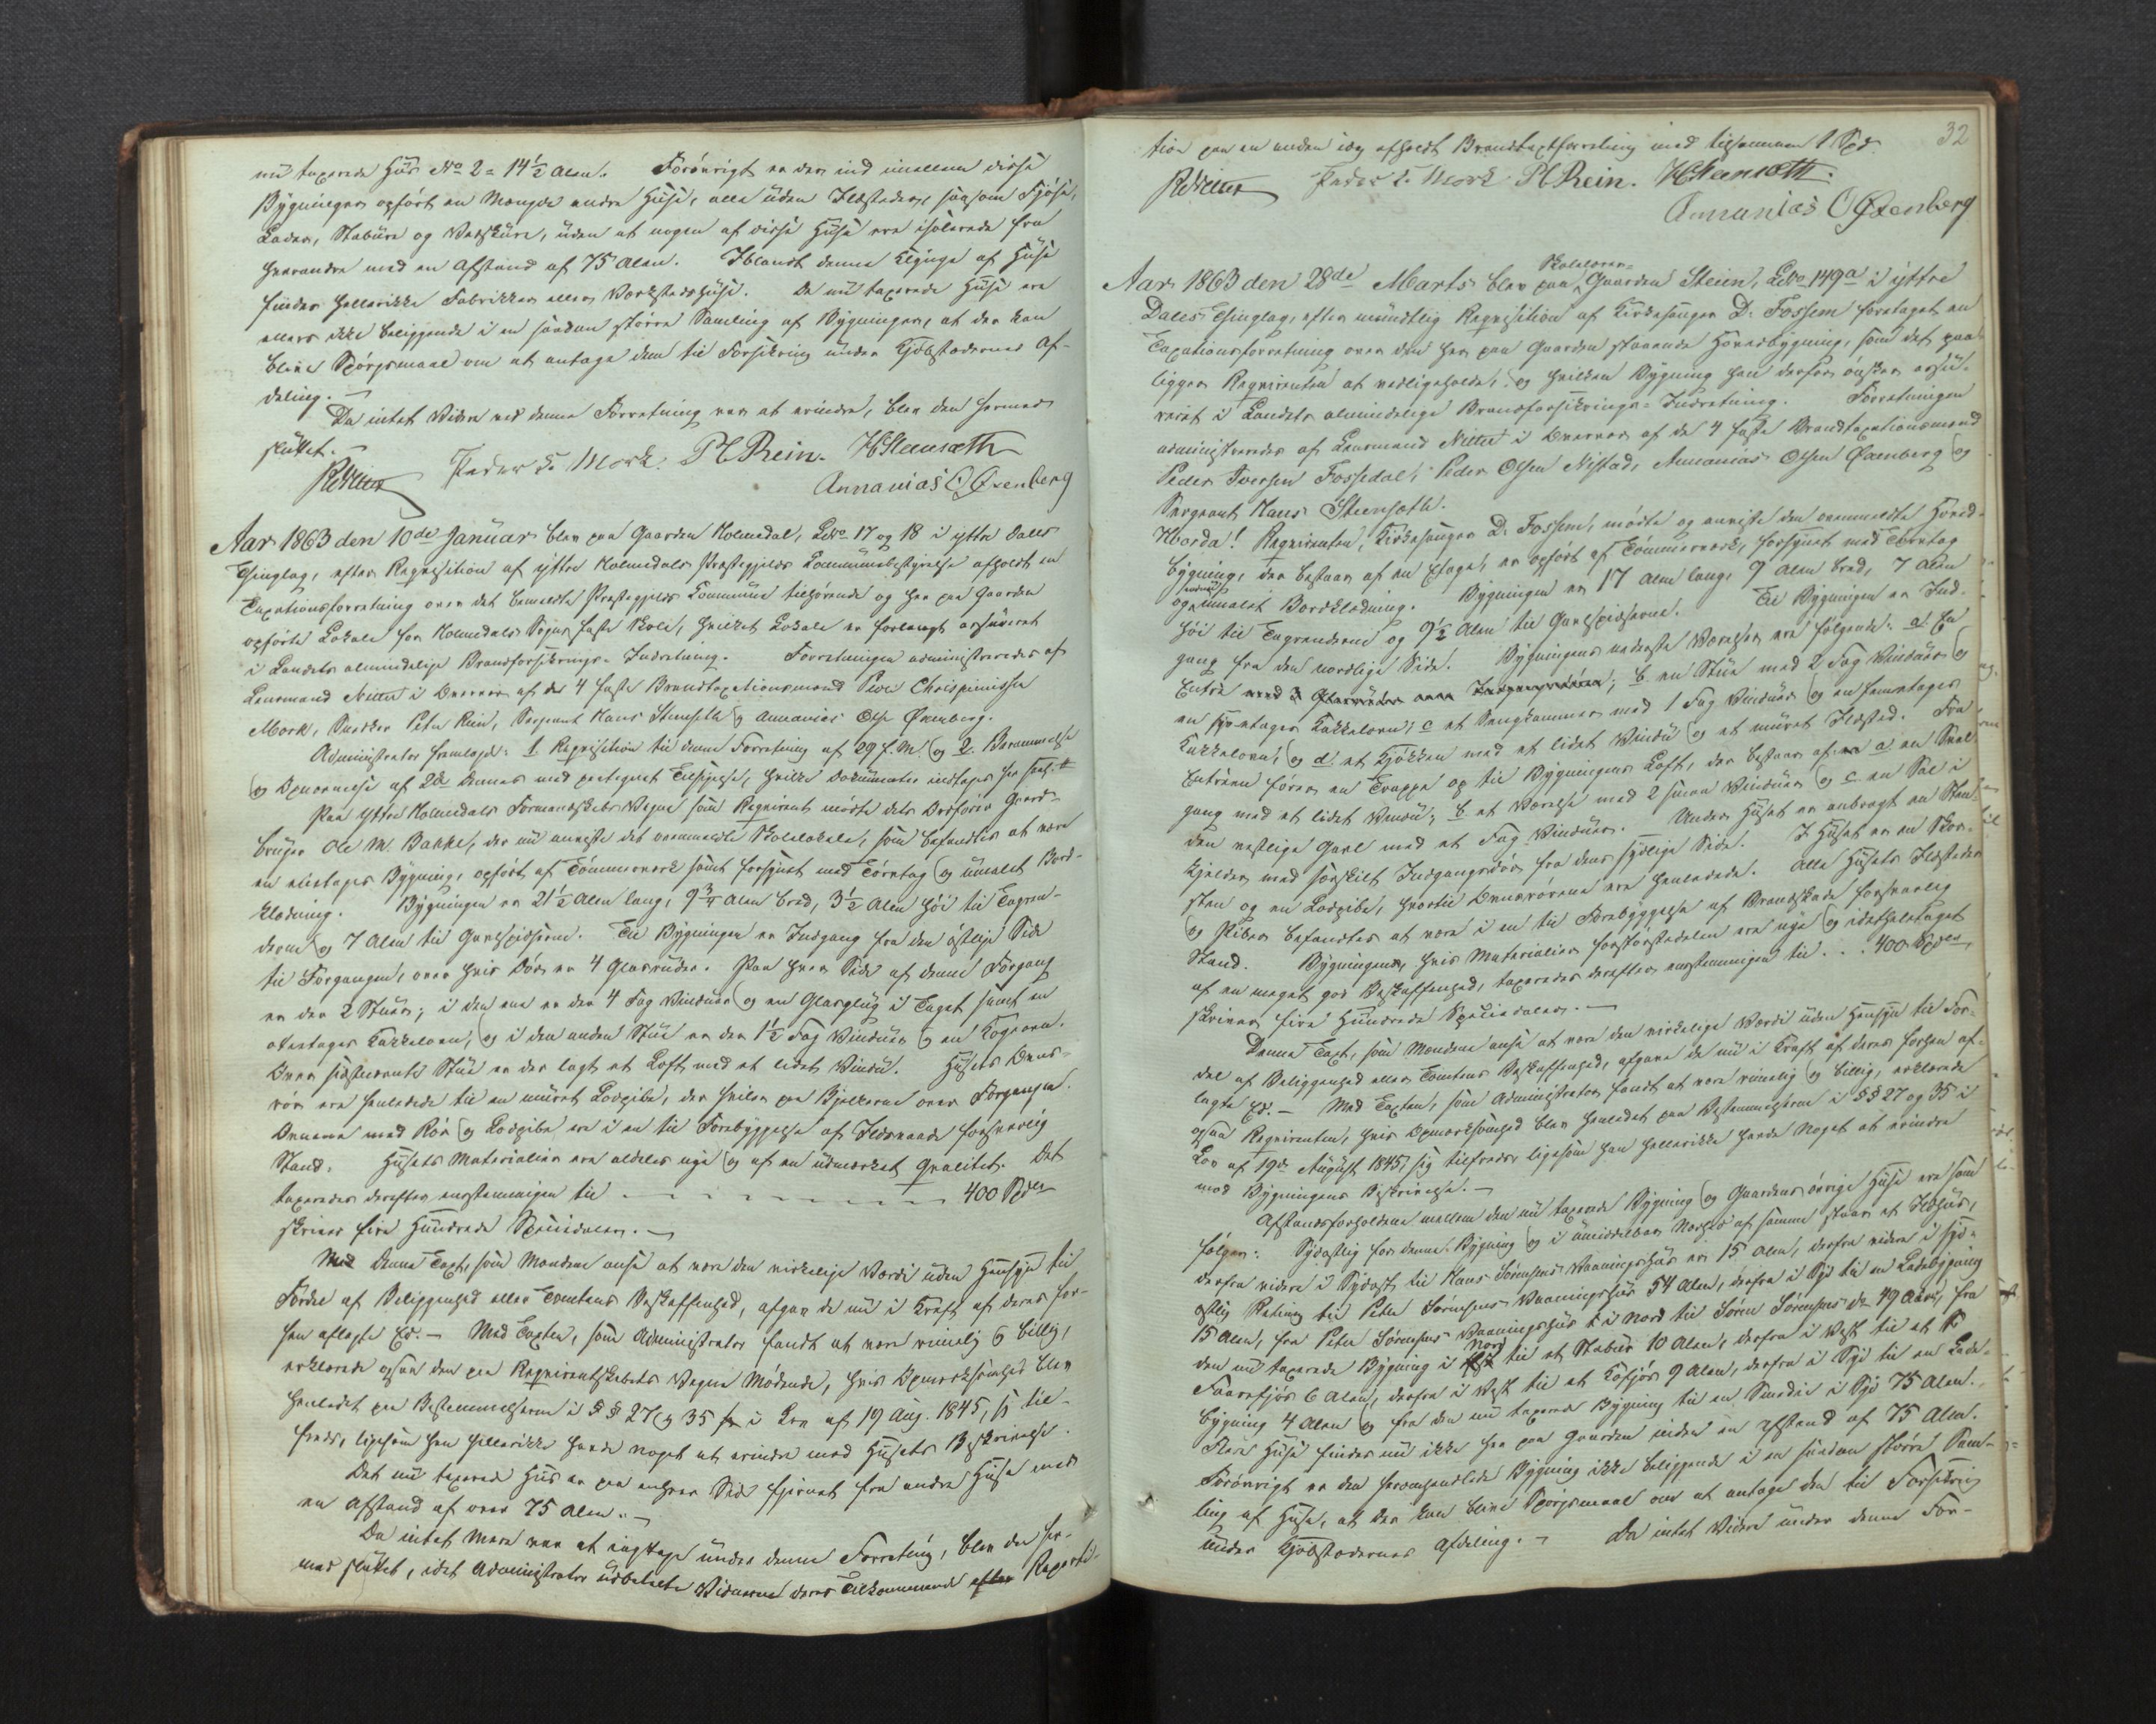 nu taxerede Huus No 2 = 14½ Alen. Forøvrigt er der ind imellem disse
Bygninger opført en Mængde andre Huse, alle uden Ildsteder, saasom Fjøse,
Lader, Stabure og Vedskure, uden at nogen af disse Huse ere isolerede fra
hverandre med en Afstand af 75 Alen. Iblandt denne Klynge af Huse
findes hellerikke Fabrikker eller Værkstedshuse. De nu taxerede Huse ere
ellers ikke beliggende i en saadan større Samling af Bygninger, at der kan
blive Spørgsmaal om at antage dem til Forsikring under Kjøbstædernes Af-
deling. –
Da intet Videre ved denne Forretning var at erindre, blev den hermed
sluttet. –
Peder C. Mork. P C Rein. H Steensæth
Annanias O Øxenberg
Aar 1863 den 10de Januar blev paa Gaarden Holmedal, LNo 17 og 18 i ytre Dales
Thinglag, efter Reqvisition af ytre Holmedals Præstegjelds Communebestyrelse afholdt en
Taxationsforretning over det bemeldte Præstegjelds Commune tilhørende og her paa Gaarden
opførte Lokale for Holmedals Sogns faste Skole, hvilket Lokale er forlangt assureret
i Landets almindelige Brandforsikrings-Indretning. Forretningen administreredes af
Lensmand Nitter i Overvær af de 4 faste Brandtaxationsmænd Peder Chrispinussen
Mork, Snedker Peter Rein, Sergeant Hans Stensæth og Annanias Olsen Øxenberg.
Administrator fremlagde: 1. Reqvisition til denne Forretning af 29 f. M. og 2. Berammelse
og Opnævnelse af 2de dennes med paategnet Tilsigelse, hvilke Dokumenter indtages her saal.
Paa ytre Holmedals Formandskabs Vegne som Reqvirent mødte dets Ordfører Gaard-
bruger Ole M. Bakke, der nu anviste det ovenmeldte Skolelokale, som befandtes at være
en eenetages Bygning, opført af Tømmerværk samt forsynet med Tørvtag og umalet Bord-
klædning. Bygningen er 21½ Alen lang, 9¾ Alen bred, 3½ Alen høi til Tagren-
derne og 7 Alen til Gavlspidserne. Til Bygningen er Indgang fra den østlige Side
til Forgangen, over hvis Dør er 4 Glasruder. Paa hver Side af denne Forgang
er der 2 Stuer; i den ene er der 4 Fag Vinduer og en Glasglug i Taget samt en
Kakkelovn, og i den anden Stue er der 1½ Fag Vinduer og en Kogeovn.
Over sidstnævnte Stue er der lagt et Loft med et lidet Vindu. Husets Ovns-
rør ere henledede til en muret Lodpibe, der hviler paa Bjelkerne over Forgangen.
Ovnene med Rør og Lodpibe ere i en til Forebyggelse af Ildsvaade forsvarlig
Stand. Husets Materialier ere aldeles nye og af en udmærket Qvalitet. Det
taxeredes derefter enstemmigen til – – – – – – – – – – 400 Spdlr
skriver fire Hundrede Speciedaler. –
Med denne Taxt, som Mændene anse at være den virkelige Værdi uden Hensyn til
Fordel af Beliggenhed eller Tomtens Beskaffenhed, afgav de nu i Kraft af deres for-
hen aflagte Ed. – Med Taxten, som Administrator fandt at være rimelig og billig,
erklærede ogsaa den paa Reqvirentskabets Vegne Mødende, hvis Opmærksomhed blev
henledet paa Bestemmelserne i §§ 27 og 35 i Lov af 19 Aug. 1845, sig til-
freds, ligesom han hellerikke havde noget at erindre mod Husets Beskrivelse.
Det nu taxerede Huus er paa enhver Side fjernet fra andre Huse med
en Afstand af over 75 Alen. –
Da intet Mere var at iagttage under denne Forretning, blev den her-
med sluttet, idet Administrator udbetalte Vidnerne deres Tilkommende efter Reparti-
32
tion paa en anden idag afholdt Brandtaxtforretning med tilsammen 1 Spd.
Peder C. Mork P C Rein. H Steensæth.
Annanias O Øxenberg
Skolelærer-
Aar 1863 den 28de Marts blev paa Gaarden Steen, LNo 149a i ytre
Dales Thinglag, efter mundtlig Reqvisition af Kirkesanger D. Fossem foretaget en
Taxationsforretning over den her paa Gaarden staaende Hovedbygning, som det paa-
ligger Reqvirenten at vedligeholde, og hvilken Bygning han derfor ønsker assu-
reret i Landets almindelige Brandforsikrings-Indretning. Forretningen
administreredes af Lensmand Nitter i Overvær af de 4 faste Brandtaxationsmænd
Peder Iversen Fossedal, Peder Olsen Nistad, Annanias Olsen Øxenberg og
Sergeant Hans Steensæth.
Hvorda! Reqvirenten, Kirkesanger D. Fossem, mødte og anviste den ovenmeldte Hoved-
bygning, der bestaar af en Etage, er opført af Tømmerværk, forsynet med Tørvtag
og umalet Bordklædning. Bygningen er 17 Alen lang, 9 Alen bred, 7 Alen
høi til Tagrenderne og 9½ Alen til Gavlspidserne. Til Bygningen er Ind-
gang fra den nordlige Side. Bygningens nederste Værelser ere følgende: a. En
Entré med 3 Glasruder over Indgangsdøren; b. en Stue med 2 Fag Vinduer og
en Kakkelovn; c et Sengkammer med 1 Fag Vinduer og en
Kakkelovn, og d. et Kjøkken med et lidet Vindu og et muret Ildsted. Fra
Entréen fører en Trappe op til Bygningens Loft, der bestaar af a en Sval-
gang med et lidet Vindu; b et Værelse med 2 smaa Vinduer og c en Sal i
den vestlige Gavl med et Fag Vinduer. Under Huset er anbragt en Steen-
kjelder med særskilt Indgangsdør fra dens sydlige Side. I Huset er en Skor-
steen og en Lodpibe, hvortil Ovnsrørene ere henledede. Alle Husets Ildsteder
og Piber befandtes at være i en til Forebyggelse af Brandskade forsvarlig
Stand. Bygningen, hvis Materialier forstørstedelen ere nye og idetheletaget
af en meget god Beskaffenhed, taxeredes derefter enstemmigen til . . . 400 Spdlr
skriver fire Hundrede Speciedaler. –
Denne Taxt, som Mændene anse at være den virkelige Værdi uden Hensyn til For-
del af Beliggenhed eller Tomtens Beskaffenhed, afgave de nu i Kraft af deres forhen af-
lagte Ed. – Med Taxten, som Administrator fandt at være rimelig og billig, erklærede
ogsaa Reqvirenten, hvis Opmærksomhed blev henledet paa Bestemmelserne i §§ 27 og 35 i
Lov af 19de August 1845, sig tilfreds, ligesom han hellerikke havde Noget at erindre
mod Bygningens Beskrivelse. –
Afstandsforholdene mellem den nu taxerede Bygning og Gaardens øvrige Huse ere som
følger: Sydostlig for denne Bygning og i umiddelbar Nærhed af samme staar et Ildhus,
derfra videre i Sydost til Hans Sørensens Vaaningshus er 15 Alen, derfra videre i syd-
ostlig Retning til Peter Sørensens Vaaningshus 54 Alen, derfra i Syd til en Ladebygning
15 Alen, fra Peter Sørensens Vaaningshus i Nord til Søren Sørensens do 49 Alen, fra
den nu taxerede Bygning i Nord til et Stabur 10 Alen, derfra i Vest til et
Faarefjøs 6 Alen, derfra i Vest til et Kofjøs 9 Alen, derfra i Syd til en Lade-
bygning 4 Alen og fra den nu taxerede Bygning til en Smedie i Syd 75 Alen.
Flere Huse findes nu ikke her paa Gaarden inden en Afstand af 75 Alen.
Forøvrigt er den heromhandlede Bygning ikke beliggende i en saadan større Sam-
ling af Huse, at der kan blive Spørgsmaal om at antage den til Forsikring
under Kjøbstædernes Afdeling. – Da intet Videre under denne For-